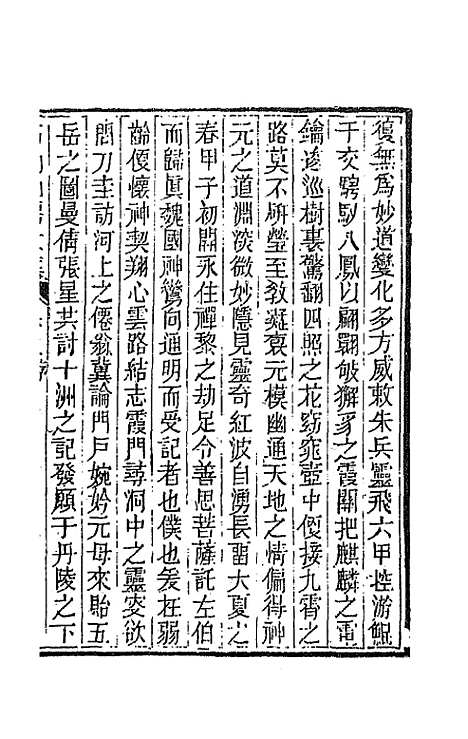 復無爲妙道變化多方威敕朱兵靈飛六甲控游鯤
于交騁馭八鳳以翩翾皱獬豸之霞關把麒麟之電
鑰遂巡樹裏驚翻四照之花窈窕壺中復接九霄之
路莫不硏瑩至教凝衷元模幽通天地之情偏得神
元之道淵淡微妙隱見靈奇紅波自湧長畱大夏之
春甲子初開永住禪黎之劫足令善思菩薩託左伯
而歸眞魏國神鸞向通明而受記者也僕也爰在弱
齡復懷神契翔心雲路結志霞門尋洞中之靈姿欲
問刀圭訪河上之僊翁冀論門戸婉妗元母來貽五
岳之圖曼倩張星共討十洲之記發願于丹陵之下